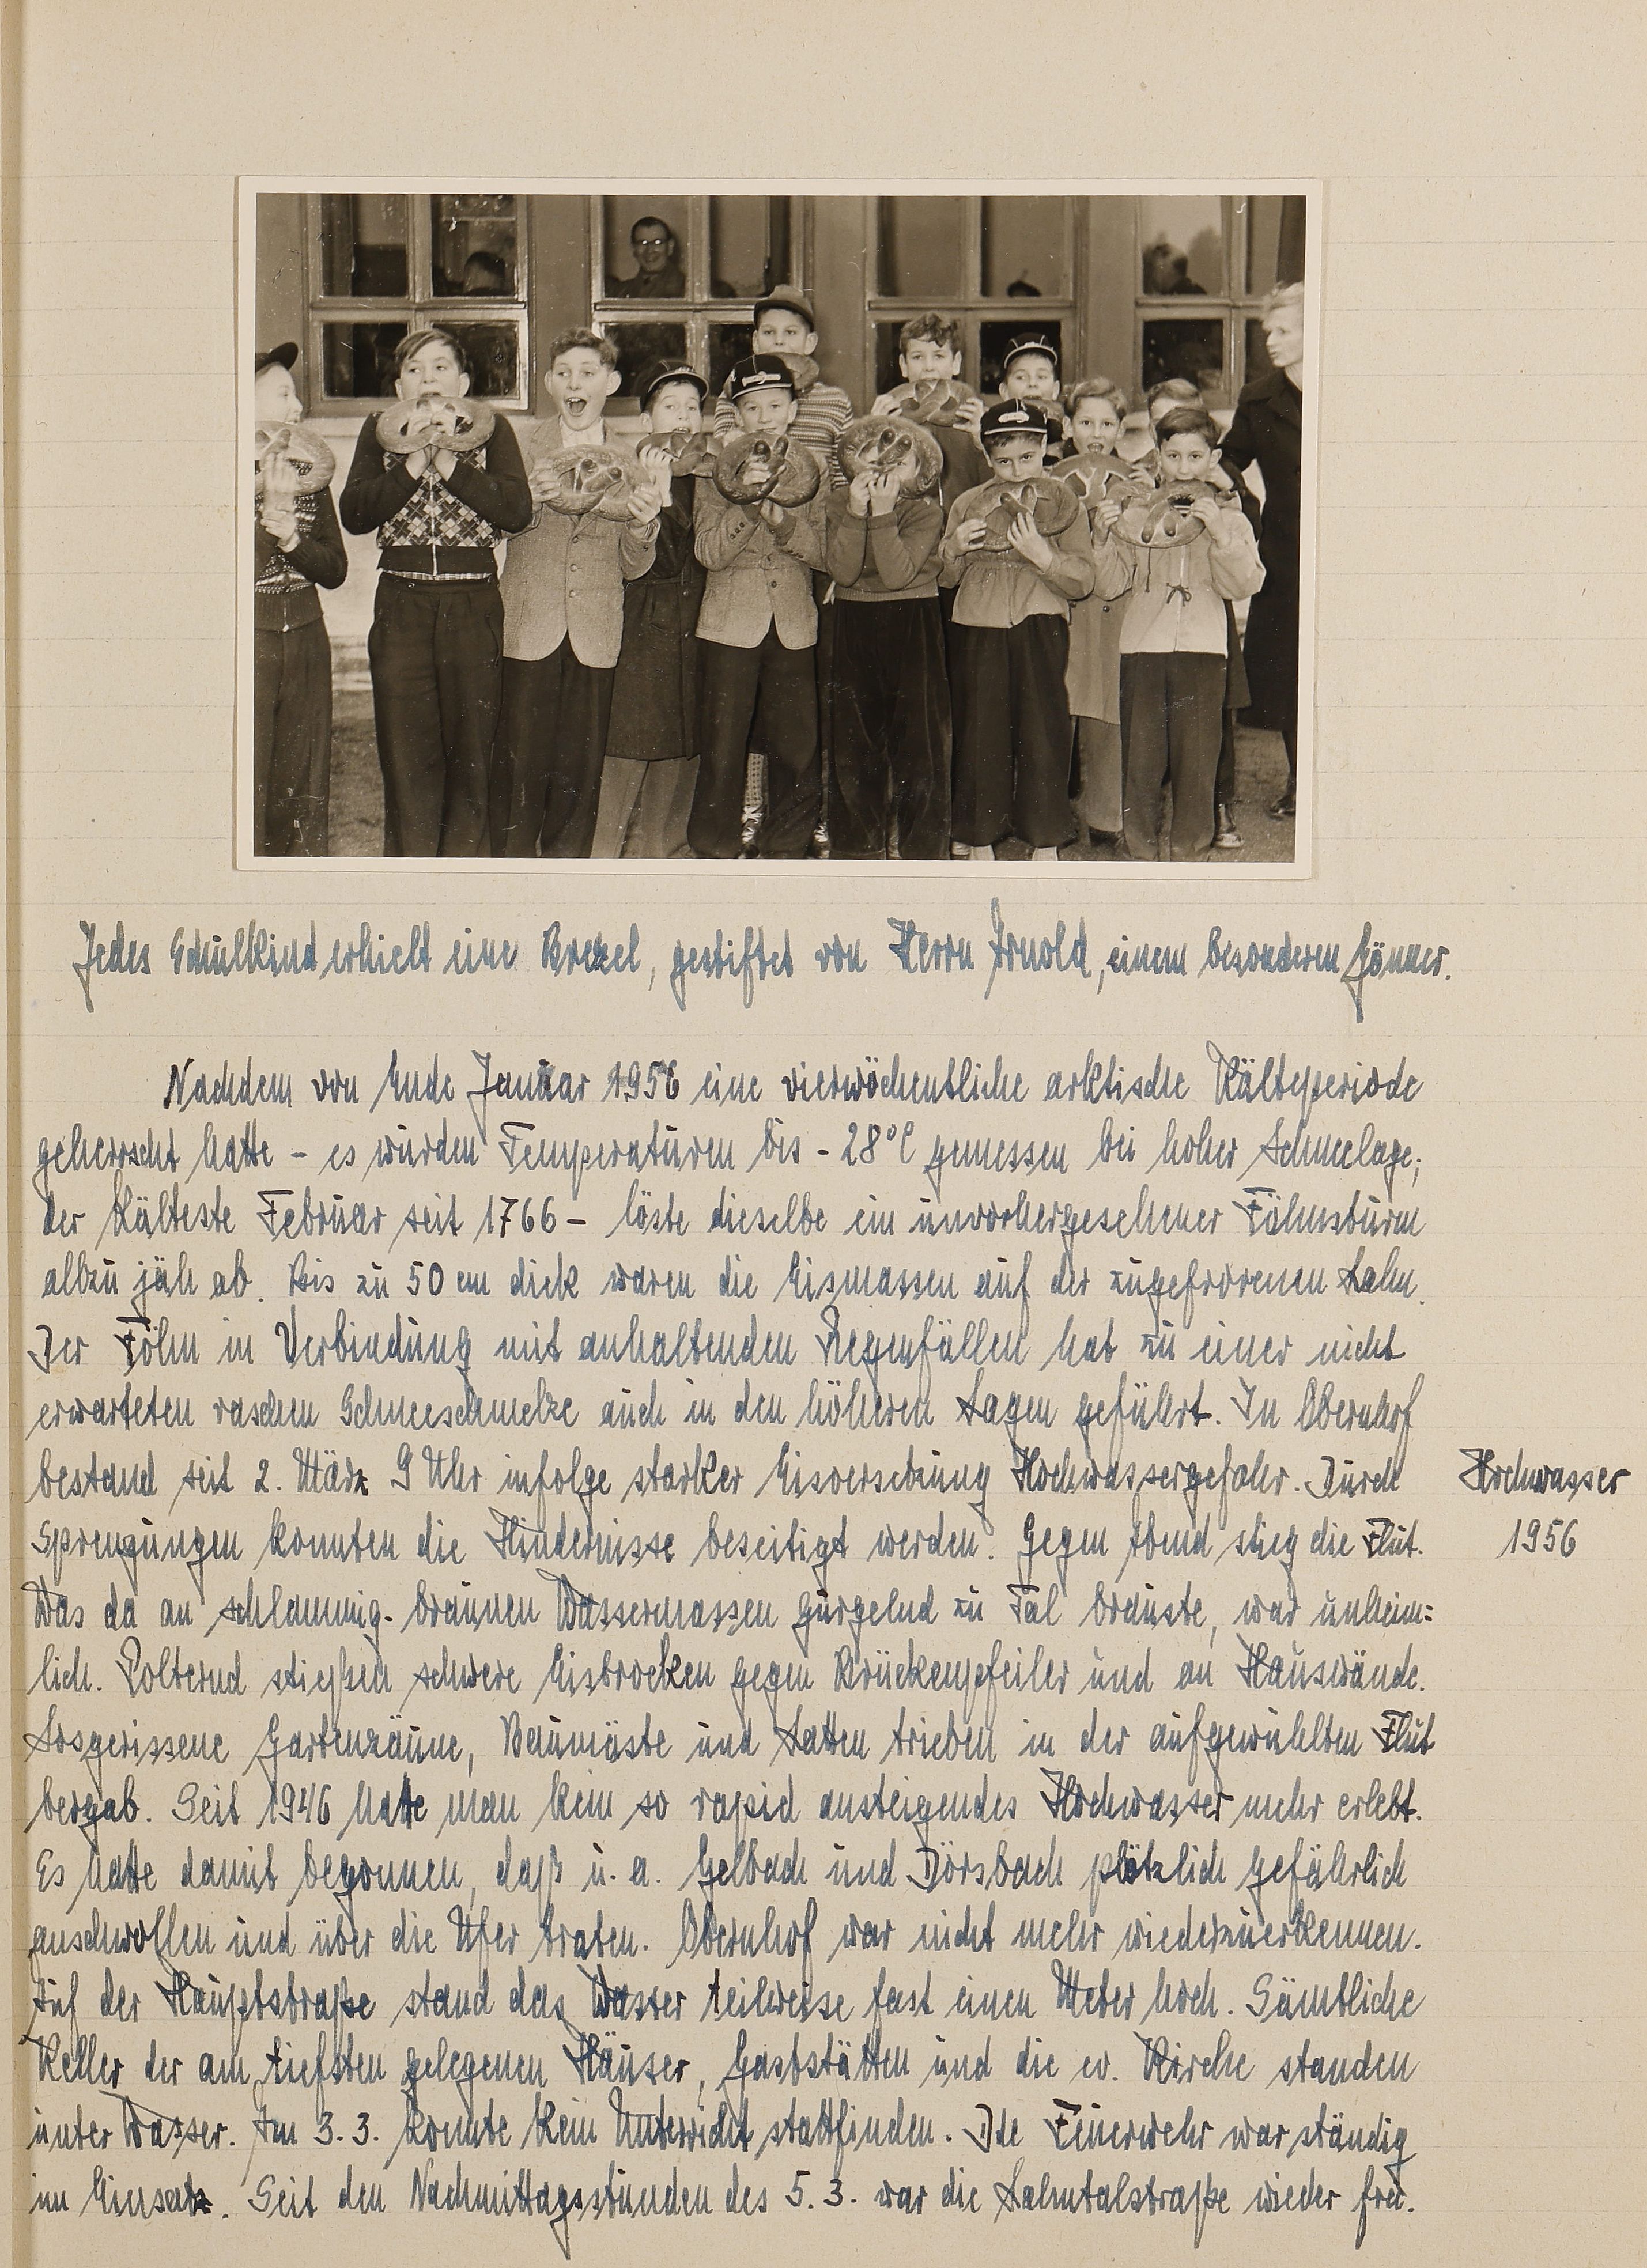 Jedes Schulkind erhielt eine Brezel, gestiftet von Herrn Arnold, einem besonderen Gönner.
Nachdem von Ende Januar 1956 eine vierwöchentliche arktische Kälteperiode
geherrscht hatte – es wurden Temperaturen bis - 28°C gemessen bei hoher Schneelage;
der kälteste Februar seit 1766 – löste dieselbe ein unvorhergesehener Föhnsturm
allzu jäh ab. Bis zu 50 cm dick waren die Eismassen auf der zugefrorenen Lahn.
Der Föhn in Verbindung mit anhaltenden Regenfällen hat zu einer nicht
erwarteten raschen Schneeschmelze auch in den höheren Lagen geführt. In Obernhof
bestand seit 2. März 9 Uhr infolge starker Eisversetzung Hochwassergefahr. Durch
Hochwasser
1956
Sprengungen konnten die Hindernisse beseitigt werden. Gegen Abend stieg die Flut.
Was da an schlammig-braunen Wassermassen gurgelnd zu Tal brauste, war unheim=
lich. Polternd stießen schwere Eisbrocken gegen Brückenpfeiler und an Hauswände.
Losgerissene Gartenzäune, Baumäste und Latten trieben in der aufgewühlten Flut
bergab. Seit 1946 hatte man kein so rapid ansteigendes Hochwasser mehr erlebt.
Es hatte damit begonnen, daß u. a. Gelbach und Dörsbach plötzlich gefährlich
anschwollen und über die Ufer traten. Obernhof war nicht mehr wiederzuerkennen.
Auf der Hauptstraße stand das Wasser teilweise fast einen Meter hoch. Sämtliche
Keller der am tiefsten gelegenen Häuser, Gaststätten und die ev. Kirche standen
unter Wasser. Am 3. 3. konnte kein Unterricht stattfinden. Die Feuerwehr war ständig
im Einsatz. Seit den Nachmittagsstunden des 5. 3. war die Lahntalstraße wieder frei.